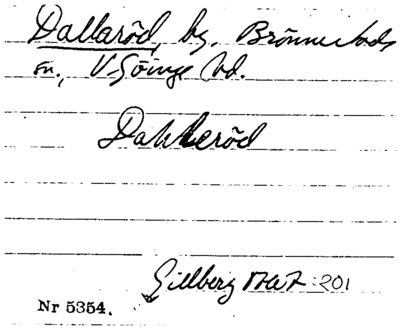 Dallaröd, by, Brönnestads
sn., V. Göinge hd.
Dakkeröd
Gillberg 201
Nr 5354.